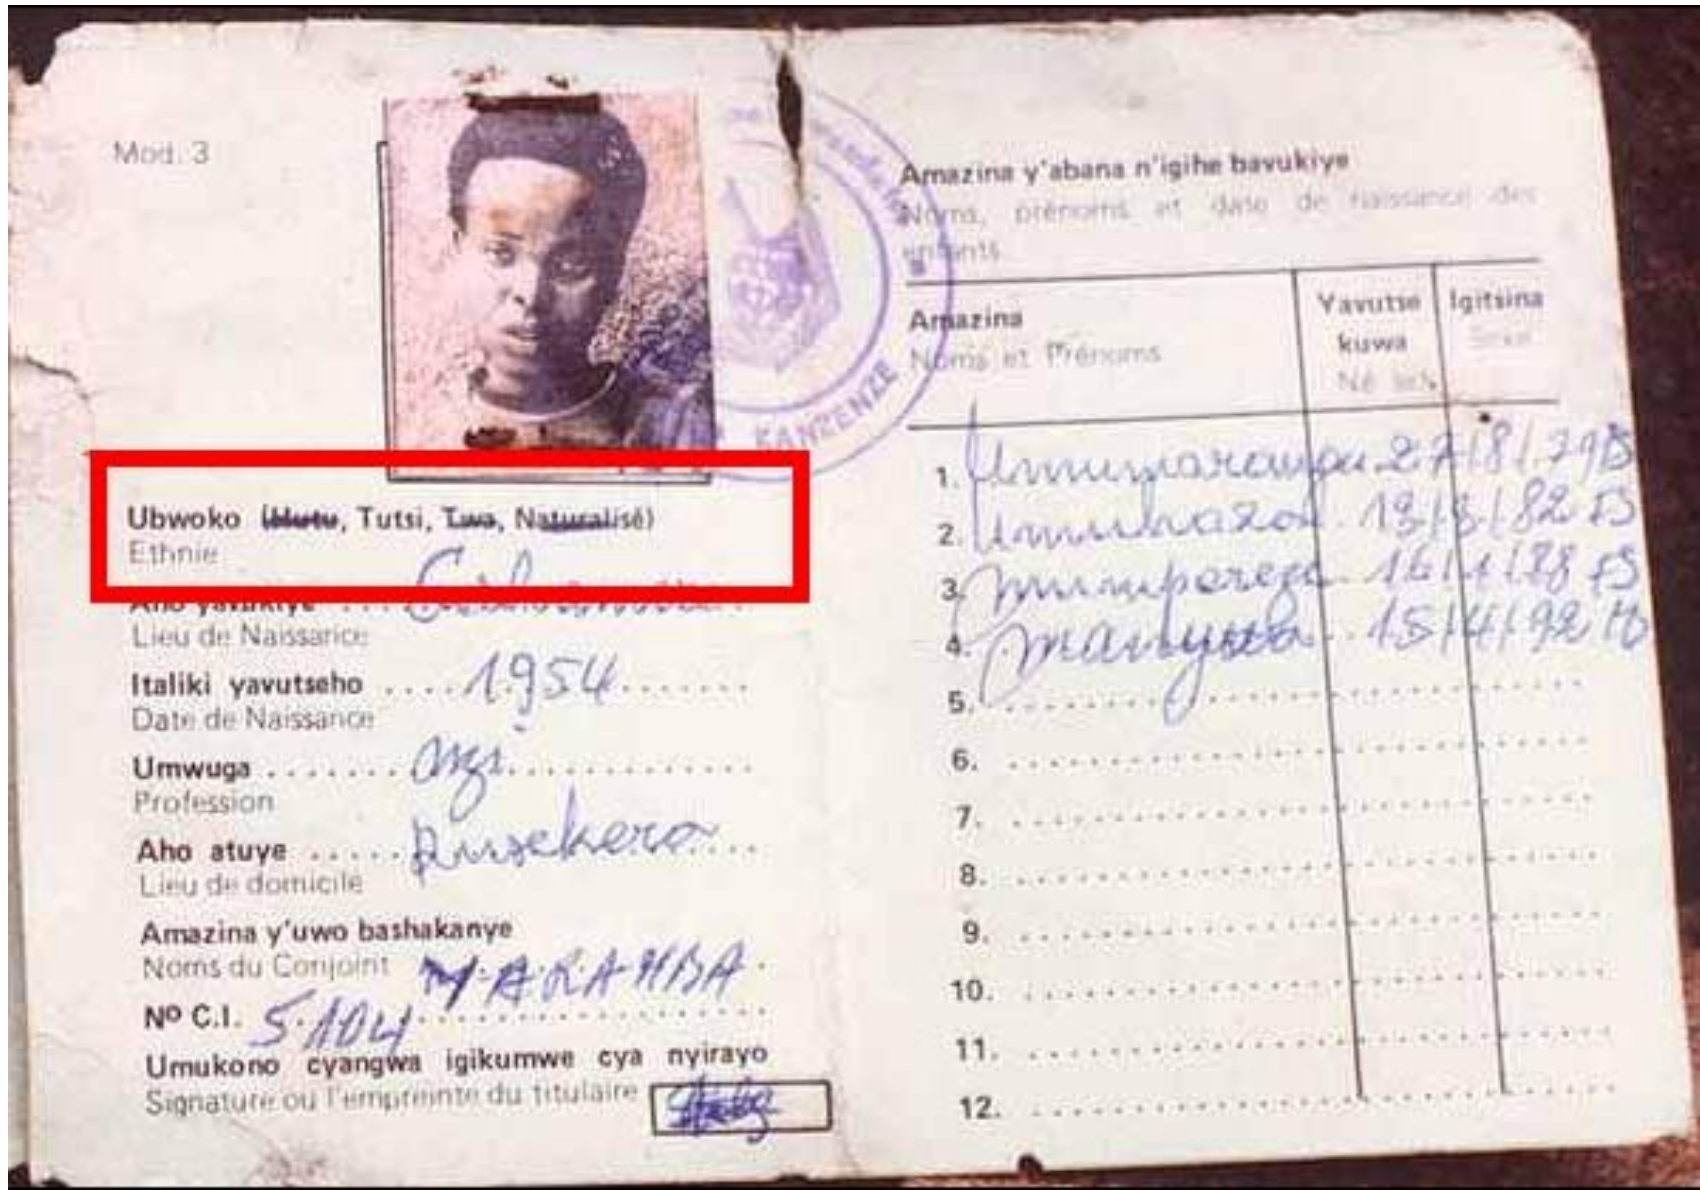 Mod. 3
KANZENZE
Ubwoko (Hutu, Tutsi, Twa, Naturalisé)
Ethnie
Aho yavukiye
Lieu de Naissance
Italiki yavutseho .... 1954
Date de Naissance
Umwuga
Profession
Aho atuye ..... Rusekera
Lieu de domicile
Amazina y'uwo bashakanye
Noms du Conjoint
Nº C.I. 5.104
Umukono cyangwa igikumwe cya nyirayo
Signature ou l'empreinte du titulaire
Amazina y'abana n'igihe bavukiye
Noms, prénoms et date de naissance des
enfants
Amazina Yavutse Igitsina
Noms et Prénoms kuwa Sexe
Né le
1. 27/8/79
2. 82
3. 16/1/88
4. 15/4/92
5.
6.
7.
8.
9.
10.
11.
12.